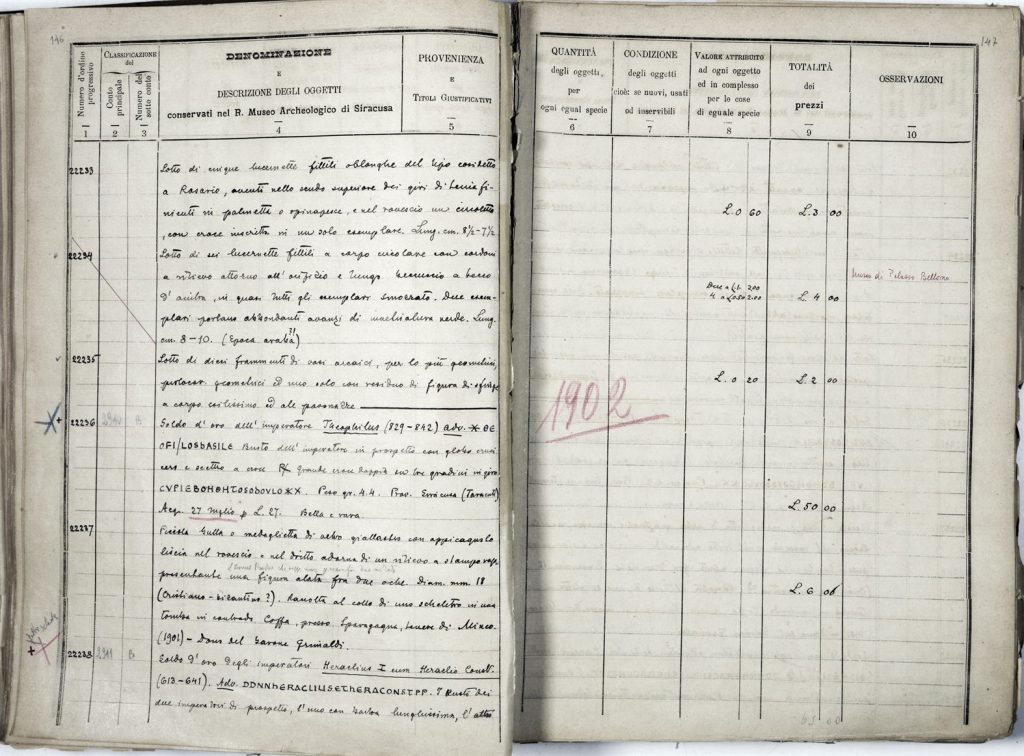 146
Numero d'ordine progressivo
CLASSIFICAZIONE
del
Conto principale
Numero del sotto conto
DENOMINAZIONE
E
DESCRIZIONE DEGLI OGGETTI
conservati nel R. Museo Archeologico di Siracusa
PROVENIENZA
E
TITOLI GIUSTIFICATIVI
1 2 3 4 5
22233 Lotto di cinque lucernette fittili oblunghe del tipo cosidetto
a Rosario, aventi nello scudo superiore dei giri di
nienti in palmetta o spinapesce, e nel rovescio un circoletto
, con croce inscritta in un solo esemplare. Lung. cm. 8½-7½
22234 Lotto di sei lucernette fittili a corpo circolare con cordoni
a rilievo attorno all'orifizio e lungo beccuccio a becco
d'anitra, in quasi tutti gli esemplari smozzato. Due esem-
plari portano abbondanti avanzi di verde. Lung.
cm. 8-10. (Epoca araba?!)
22235 Lotto di dieci frammenti di vasi arcaici, per lo più geometrici,
geometrici ed uno solo con residuo di figura di sfinge
a corpo esilissimo ed ale
22236 2910 B Soldo d'oro dell'imperatore Theophilus (829-842) Adv. * ΘE
OFI/LOSbASILE Busto dell'imperatore in prospetto con globo cruci
gero e scettro a croce R/ Grande croce doppia su tre gradini in giro
CVPIEBOHΘHTOSOδOVLO**. Peso gr. 4.4. Prov.
Acq. 27 luglio p L. 27. Bella e rara
22237 Piccola bulla o medaglietta di vetro giallastro con appiccagnolo
liscia nel rovescio e nel dritto adorna di un rilievo a stampo
presentante una figura alata fra due oche. Diam. mm 18
(Cristiano-bizantina?). Raccolta al collo di uno scheletro in una
tomba in contrada Coffa, presso
(1901) - Dono del barone Grimaldi.
22238 2911 B Soldo d'oro degli imperatori Heraclius I cum Heraclio Const.
(613-641). Adv. DDNNHERACLIUSETHERACONSTPP. Busti dei
due imperatori di prospetto, l'uno con barba lunghissima, l'altro
147
QUANTITÀ
degli oggetti
per
ogni egual specie
CONDIZIONE
degli oggetti
cioè: se nuovi, usati
od inservibili
VALORE ATTRIBUITO
ad ogni oggetto
ed in complesso
per le cose
di eguale specie
TOTALITÀ
dei
prezzi
OSSERVAZIONI
6 7 8 9 10
L. 0 60 L. 3 00
Museo di Palazzo Bellomo
Due a L. 1. 2.00
4 a L 0.50 2.00 L. 4 00
L. 0 20 L. 2 00
1902
L. 50 00
L. 6 00
65 00